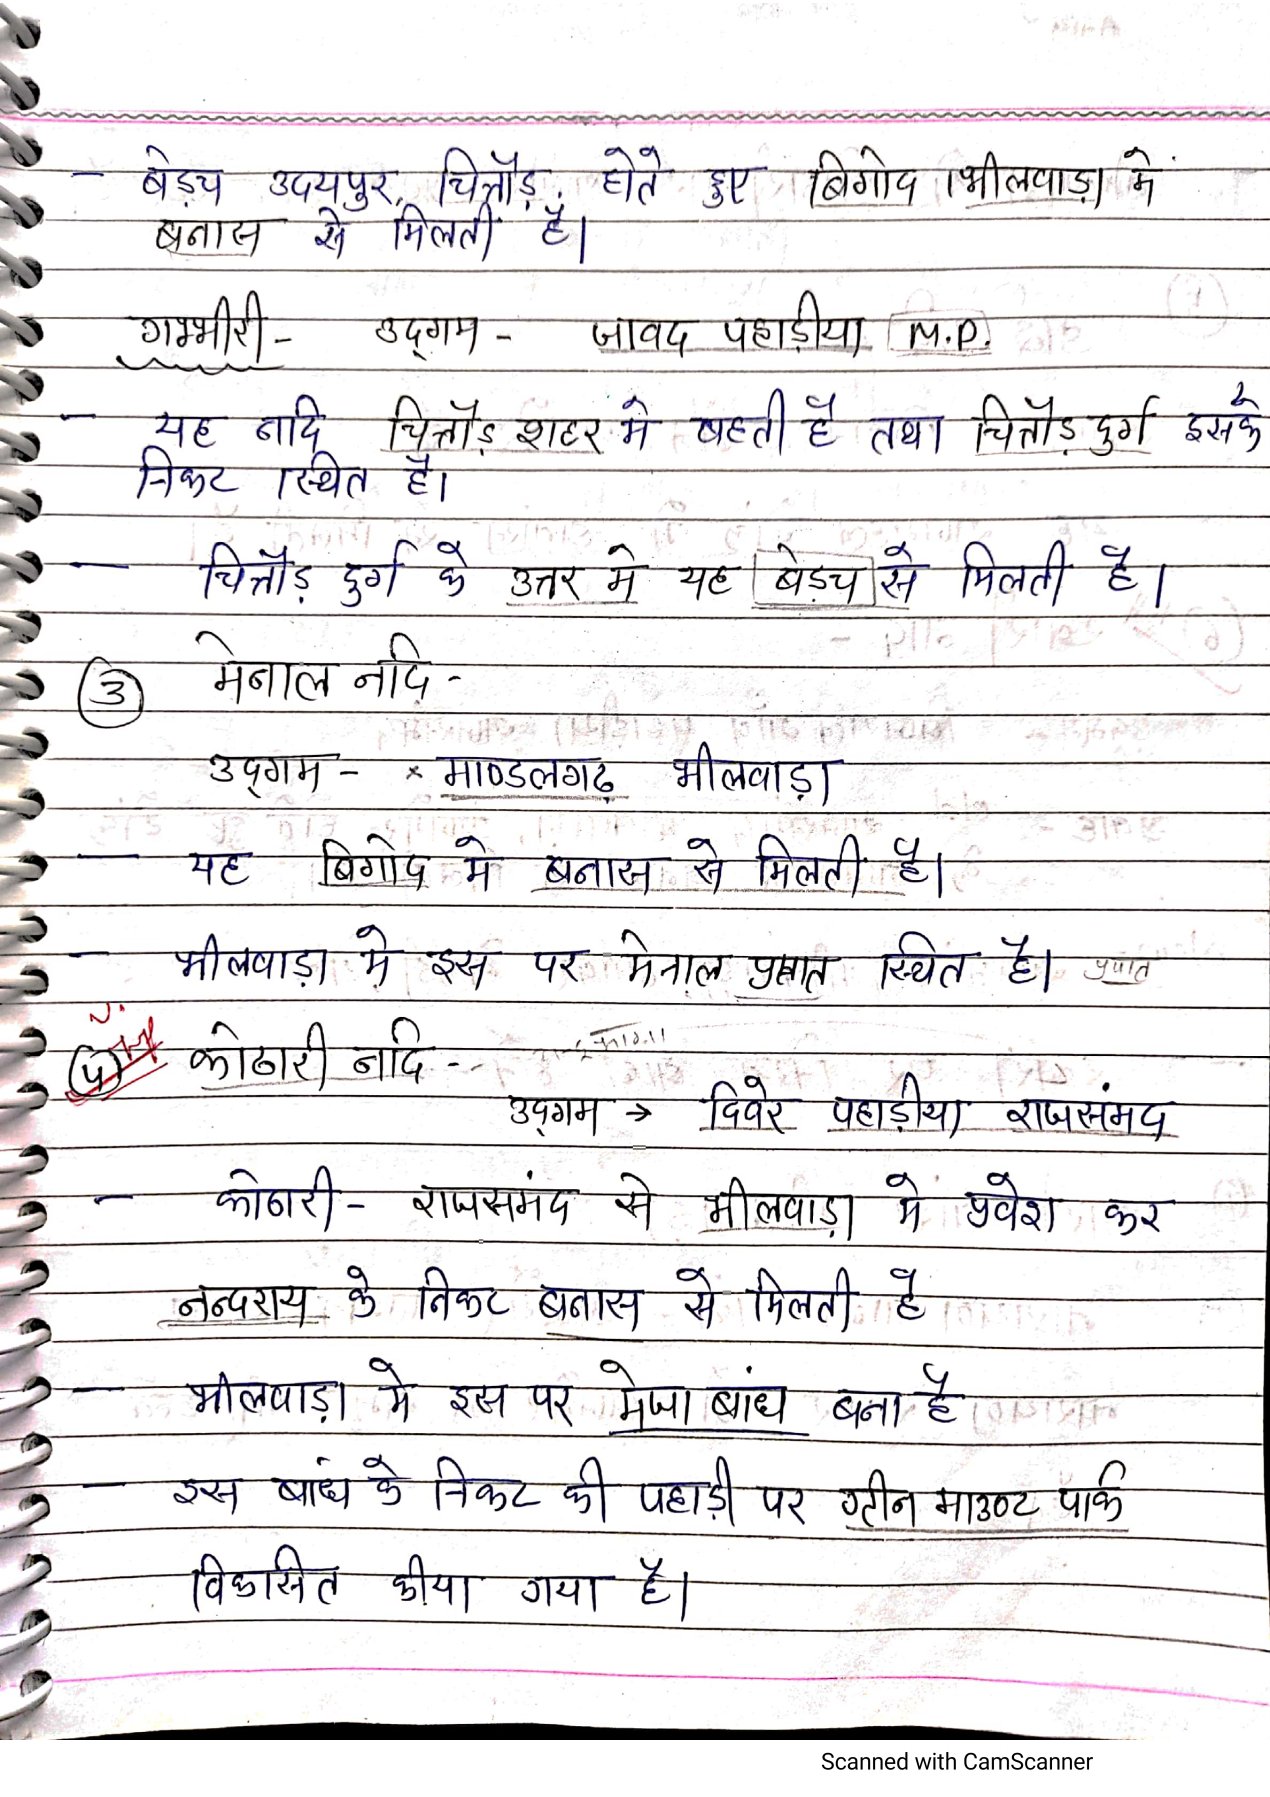 - बेड़च उदयपुर, चित्तौड़, होते हुए बिगोद भीलवाड़ा में
बनास से मिलती है।
गम्भीरी- उद्‌गम - जावद पहाड़ीया M.P.
- यह नदि चित्तौड़ शहर मे बहती है तथा चित्तौड़ दुर्ग इसके
निकट स्थित है।
- चित्तौड़ दुर्ग के उत्तर मे यह बेड़च से मिलती है।
③ मेनाल नदि -
उद्‌गम - × माण्डलगढ़ भीलवाड़ा
- यह बिगोद मे बनास से मिलती है।
- भीलवाड़ा मे इस पर मेनाल प्रपात स्थित है। प्रपात
④ कोठारी नदि --
उद्‌गम → दिवेर पहाड़ीया राजसंमद
- कोठारी - राजसमंद से भीलवाड़ा मे प्रवेश कर
नन्दराय के निकट बनास से मिलती है
- भीलवाड़ा मे इस पर मेजा बांध बना है
- इस बांध के निकट की पहाड़ी पर ग्रीन माउण्ट पार्क
विकसित कीया गया है।
Scanned with CamScanner